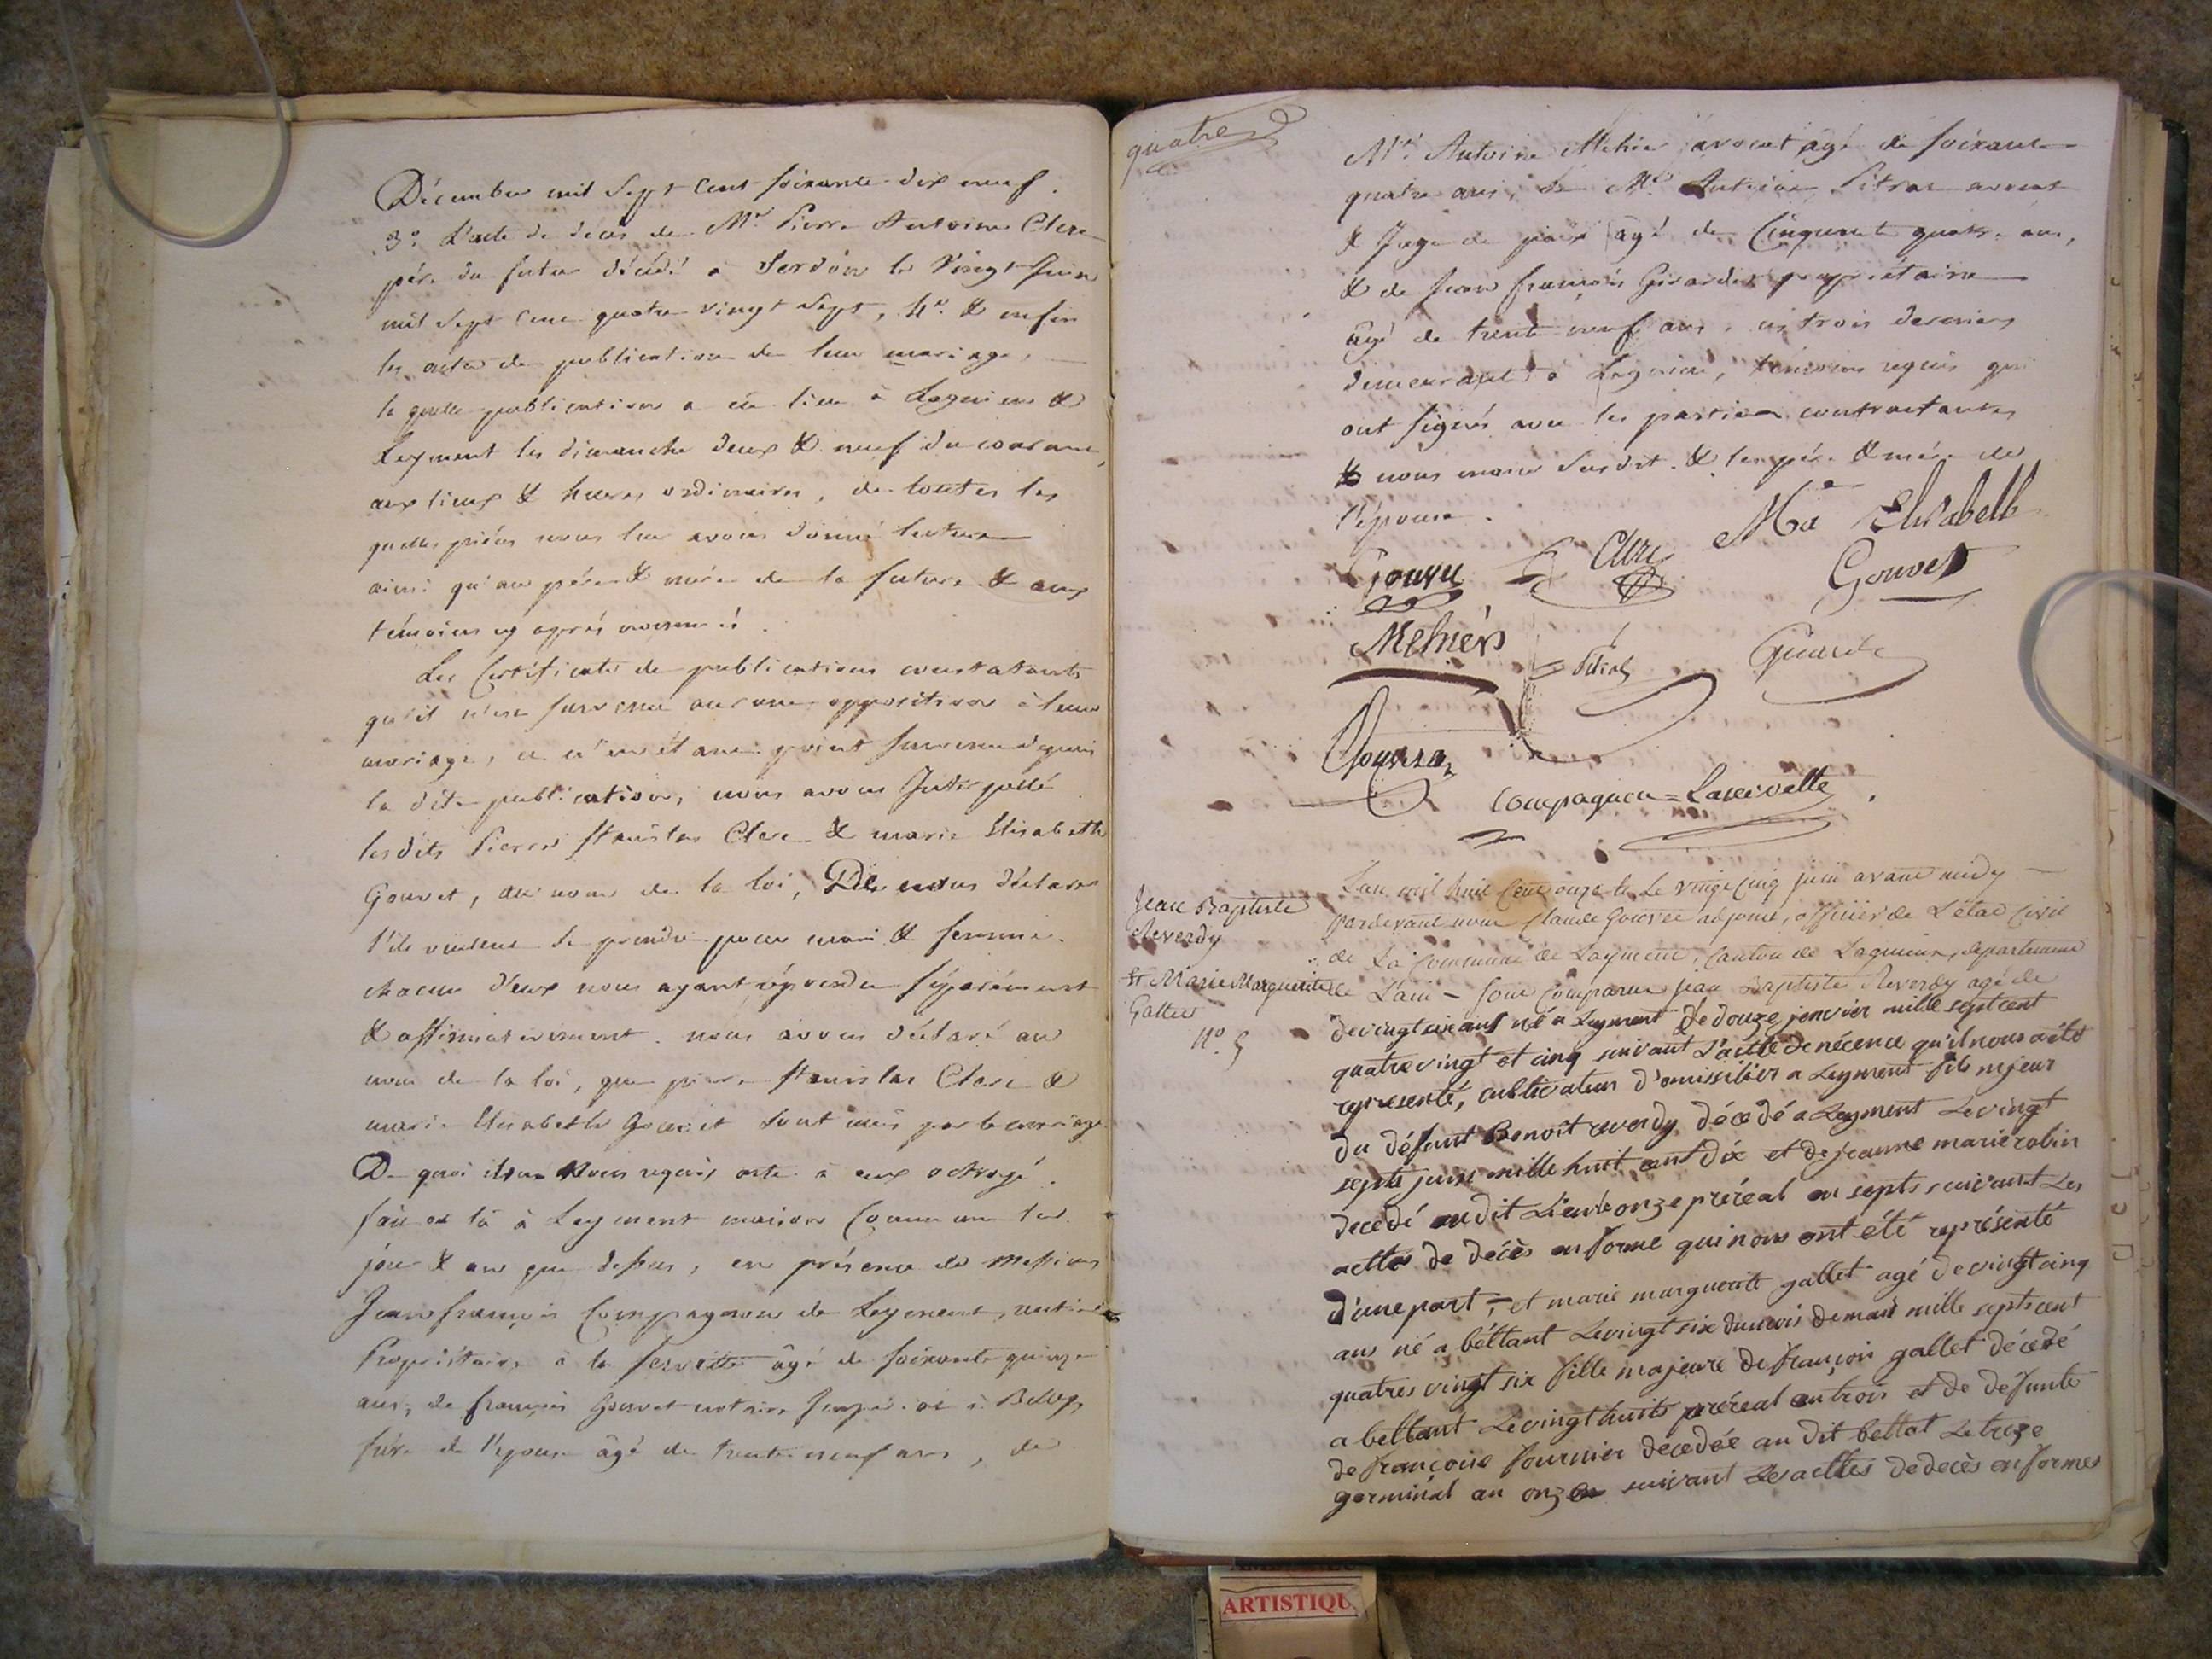 Décembre mil Sept Cent soixante dix neuf.
3º. L'acte de décès de Mr. Pierre Antoine Clerc
père du futur décédé à Serdon le Vingt Juin
mil Sept Cent quatre vingt Sept, 4º. & enfin
les actes de publication de leur mariage,
la quelle publication a eu lieu à Lagnieu &
Leyment les dimanche deux & neuf du courant,
aux lieux & heures ordinaires, de toutes les
quelles pièces nous leur avons donné lecture
ainsi qu'aux père & mère de la future & aux
témoins cy après nommés.
Les Certificats de publications constatants
qu'il n'est survenu aucune opposition à leur
mariage, et n'en étant point survenu depuis
la dite publication, nous avons Interpellé
lesdits Pierre Stanislas Clerc & marie Elisabeth
Gouvet, au nom de la loi, De nous déclarer
s'ils veulent se prendre pour mari & femme.
chacun d'eux nous ayant répondu séparément
& affirmativement. nous avons déclaré au
nom de la loi, que pierre Stanislas Clerc &
marie Elisabeth Gouvet sont unis par le mariage
De quoi ils nous requis acte à eux octroyé.
fait et lû à Leyment maison Commune les
jour & an que dessus, en présence de Messieurs
Jean françois Compagnon de Leyment,
Propriétaire à la servette âgé de soixante quinze
ans, de françois Gouvet notaire Impérial à Belley,
frère de l'épouse âgé de trente neuf ans, de
quatre
Mr. Antoine Méhier avocat âgé de soixante
quatre ans, de Mr. Antoine Pitrat avocat
& Juge de paix âgé de Cinquante quatre ans,
& de Jean françois Girardet propriétaire
âgé de trente neuf ans, ces trois derniers
demeurants à Lagnieu, témoins requis qui
ont signés avec les parties contractantes
& nous maire susdit. & les père & mère de
l'épouse.
Gouvet Clerc Mie Elisabeth
Gouvet
Mehier Pitrat Girardet
Compagnon = Laservette
L'an mil huit Cent onze & Le vingt Cinq juin avant midy
Jean Baptiste
Reverdy
& Marie Marguerite
Gallet
Nº. 5
pardevant nous Claude Gouvet adjoint, officier de L'état Civil
de La Commune de Leyment, Canton de Lagnieux, département
de L'ain = sont Comparus Jean Baptiste Reverdy agé de
de vingt six ans né a Leyment Le douze jenvier mille sept cent
quatre vingt et cinq suivant L'actte de nécence qu'il nous a été
représenté, cultivateur d'omissilier a Leyment fils mejeur
du défunt Benoit reverdy décédé a Leyment Le vingt
septs juin mille huit cent dix et de jeanne marie robin
decedé au dit Lieu le onze préreal an septs suivant Les
acttes de décès en forme qui nous ont été représenté
d'une part, = et marie marguerite gallet agé de vingt cinq
ans né a béttant Le vingt six du mois de mai mille septs cent
quatres vingt six fille majeure de françois gallet décédé
a bettant Le vingt huits préreal an trois et de défunte
de françoise fournier decedée au dit bettat Le treze
germinal an onze suivant Les acttes de decès en formes
ARTISTIQU